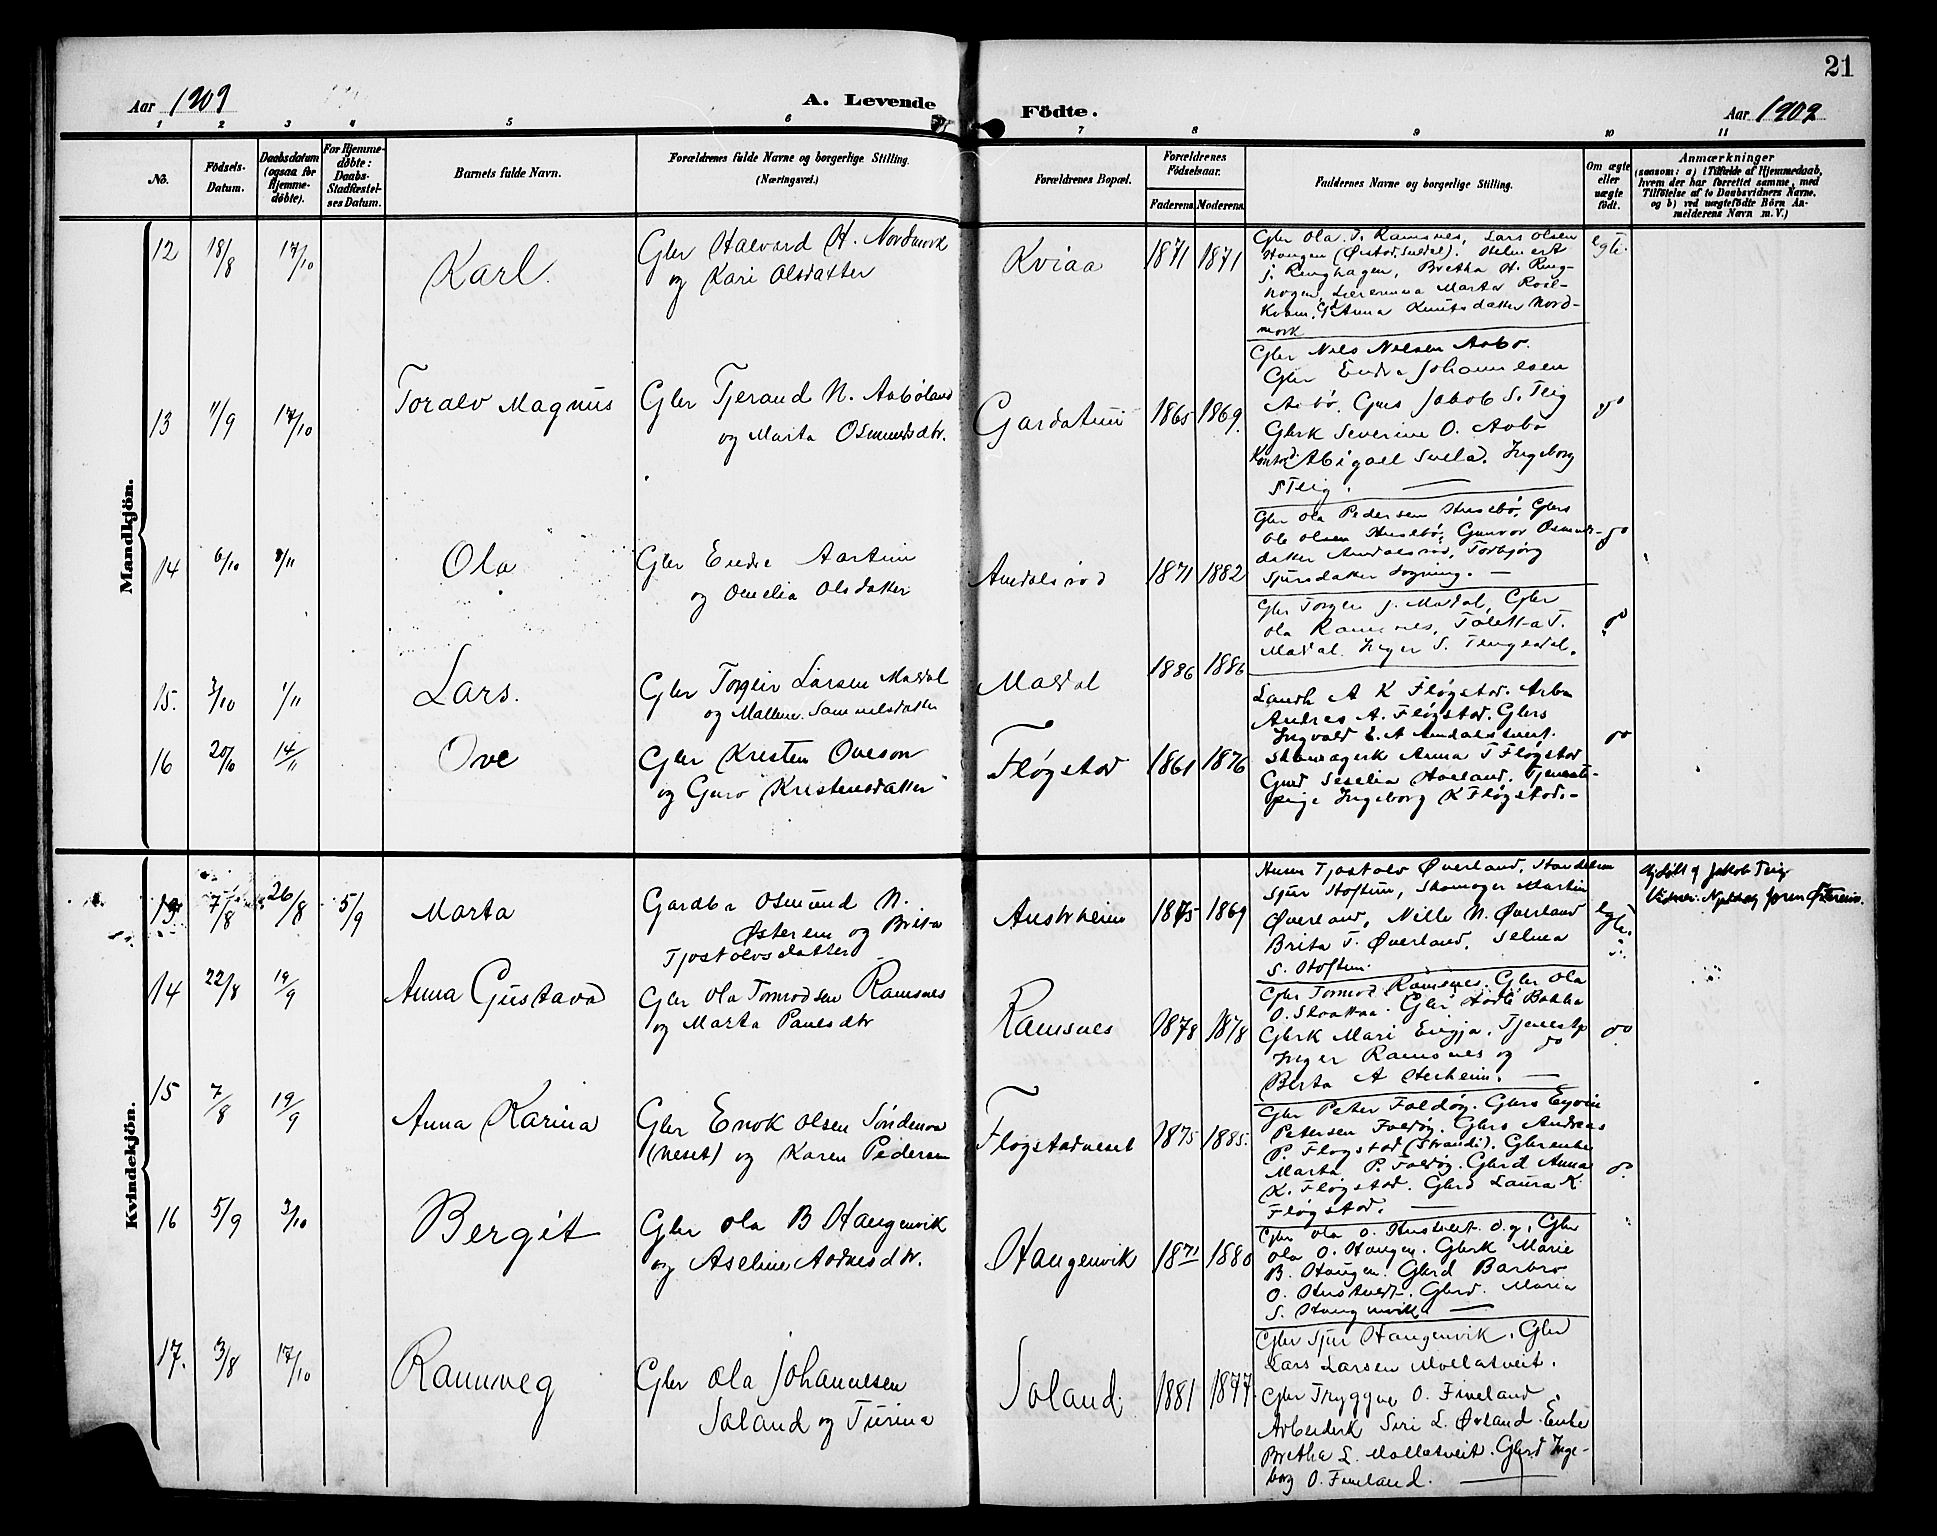 21
Aar 1909
A. Levende
Födte.
Aar 1909
1 2 3 4 5 6 7 8 9 10 11
No.
Födsels-
Datum.
Daabsdatum
(ogsaa for
Hjemme-
døbte).
For Hjemme-
døbte:
Daabs-
Stadfæstel-
ses Datum.
Barnets fulde Navn.
Forældrenes fulde Navne og borgerlige Stilling.
(Næringsvei.)
Forældrenes Bopæl.
Forældrenes
Födselsaar.
Faderens. Moderens.
Faddernes Navne og borgerlige Stilling.
Om ægte
eller
uægte
født.
Anmærkninger
(saasom: a) i Tilfælde af Hjemmedaab,
hvem der har forrettet samme, med
Tilføielse af to Daabsvidners Navne,
og b) ved uægtefødte Börn An-
melderens Navn m. V.)
Mandkjön.
12 18/8 17/10 Karl.
Gbr Halvard H. Nordmork
og Kari Olsdatter
Kviaa 1871 1871
Gbr Ola T. Ramsnes, Lars Olsen
Haugen
J. Ringhagen, Bretha H. Ring-
hagen, Lærerinna Marta Roal-
kvam, Anna Knutsdatter Nord-
mork
egte.
13 11/9 17/10 Toralv Magnus
Gbr Tjerand N. Aabøland
og Marta Osmundsdtr.
Gardatun 1865 1869.
Gbr Nils Nilsen Aabø.
Gbr Endre Johannesen
Aabø. Gbrs Jakob S. Teig
Gbrk Severine O. Aabø
Abigael Svela. Ingeborg
S Teig.
do
14 6/10 Ola
Gbr Endre Aartun
og Omelia Olsdatter
Amdalsrød 1871 1882
Gbr Ola Pedersen Husebø, Gbrs
Ole Olsen Husebø, Gunvor Osmunds-
datter Amdalsrød, Torbjørg
Sjursdatter Sogning.
do
15. 3/10 1/11 Lars.
Gbr Torgeir Larsen Maldal
og Mallene Samuelsdatter
Maldal 1886 1886
Gbr Torger J. Maldal, Gbr
Ola Ramsnes, Toletta T.
Maldal. Inger S. Tengesdal.
do
16 20/10 14/11 Ove
Gbr Kristen Oveson
og Guro Kristensdatter
Fløgstad 1861 1876
Landh A K Fløgstad. Arbm
Andres A. Fløgstad. Gbrs
Ingvald E. A Amdalstveit.
Skomagerk Anna T Fløgstad
Gmd Seselia Hoeland. Tjeneste-
pige Ingeborg K Fløgstad.
do
Kvindekjön.
13 7/8 26/8 5/9 Marta
Gardbr Osmund N.
Østerem og Brita
Tjostolvsdatter
Austrheim 1875 1869
Husm Tjostolv Øverland, Handelsm
Sjur Hoftun, Skomager Martin
Øverland, Nille N. Øverland
Brita T. Øverland, Selma
S. Hoftun.
egte.
Hj døbt af Jakob Teig
14 22/8 19/9 Anna Gustava
Gbr Ola Tormodsen Ramsnes
og Marta Paulsdtr
Ramsnes 1878 1878
Gbr Tormod Ramsnes. Gbr Ola
O. Slaattaa. Gbr Bakka
Gbrk Mari Eingja. Tjenestp
Inger Ramsnes og do
Berta A Østerheim.
do
15 7/8 19/9 Anna Karina
Gbr Enok Olsen Søndenaa
(Neset) og Karen Pedersen
Fløgstadneset 1875 1885.
Gbr Peter Foldøy. Gbrs Eyvin
Petersen Foldøy. Gbrs Andreas
P. Fløgstad (Strandi). Gbrenke
Marta P. Foldøy. Gbrd Anna
K. Fløgstad. Gbrd Laura K
Fløgstad.
do
16 5/9 3/10 Bergit
Gbr Ola B Haugenvik
og Aseline Aadnesdtr.
Haugenvik 1871 1880
Gbr Ola O. Hustveit. og Gbr
Ola O. Haugen. Gbrk Marie
B. Haugen. Gbrd Barbro
O. Hustveit. Gbrd. Maria
S. Haugenvik
17. 3/8 17/10 Rannveg
Gbr Ola Johannesen
Joland og Turina
Joland 1881 1877
Gbr Sjur Haugenvik. Gbr
Lars Larsen Mollatveit.
Gbr Tryggve O. Fineland.
Arbeiderk Siri L. Øvland. Enke
Bretha L. Mollatveit. Gbrd Inge-
borg O. Fineland.